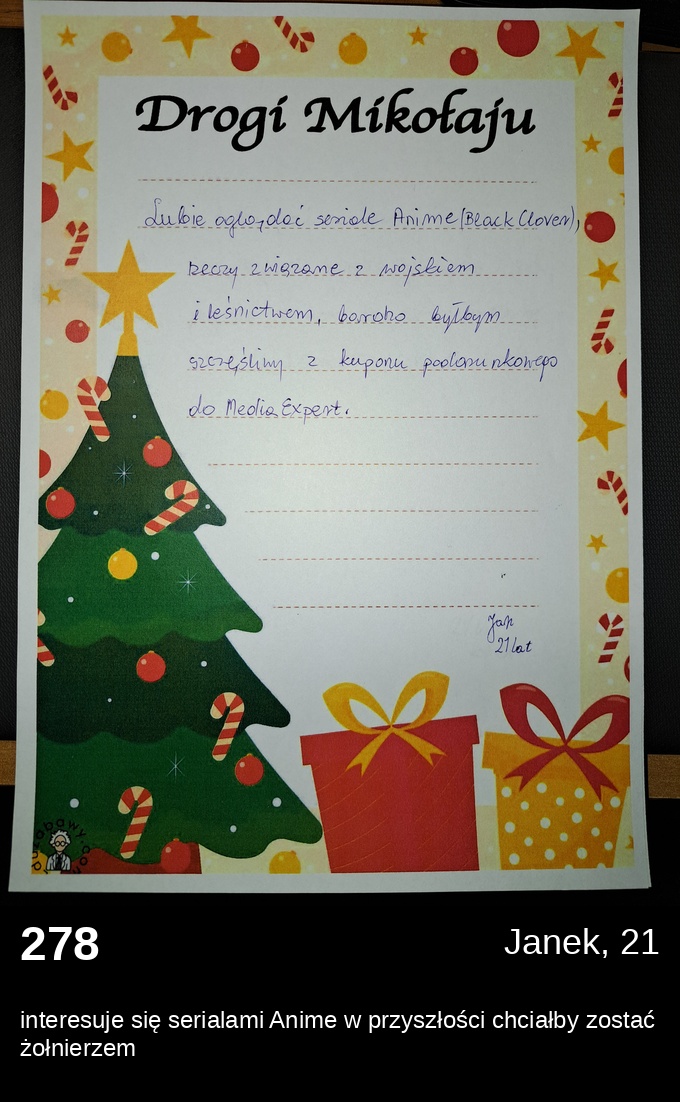 Drogi Mikołaju
Lubię oglądać seriale Anime (Black Clover),
rzeczy związane z wojskiem
i leśnictwem, bardzo byłbym
szczęśliwy z kuponu podarunkowego
do Media Expert.
Jan
21 lat
278
Janek, 21
interesuje się serialami Anime w przyszłości chciałby zostać
żołnierzem